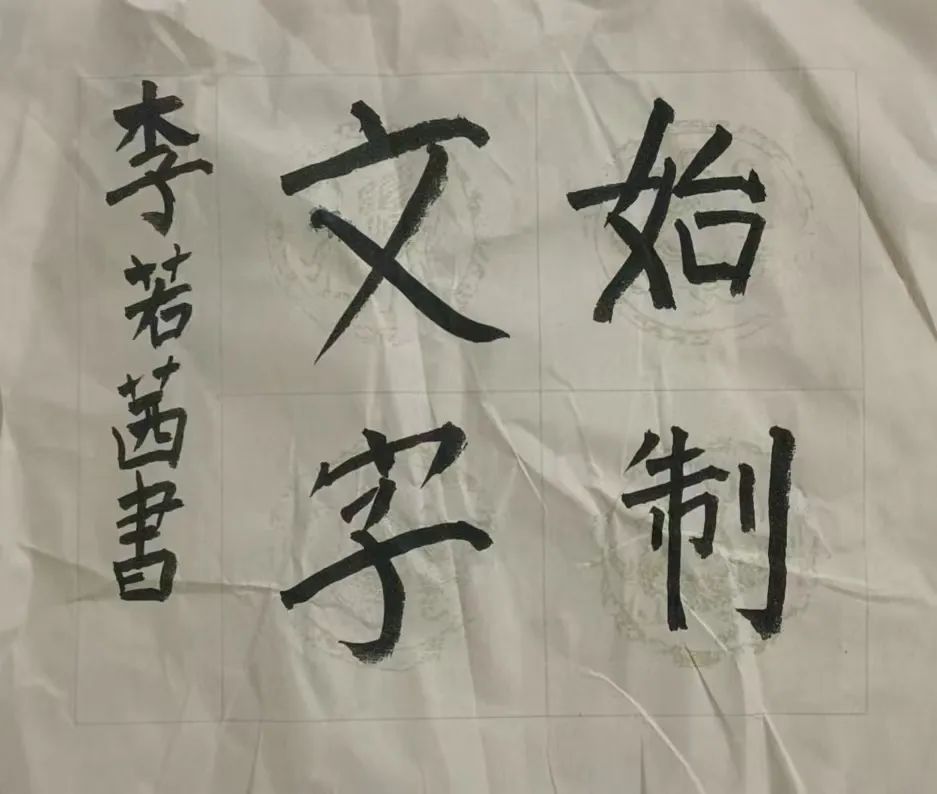 始制
文字
李若茜書